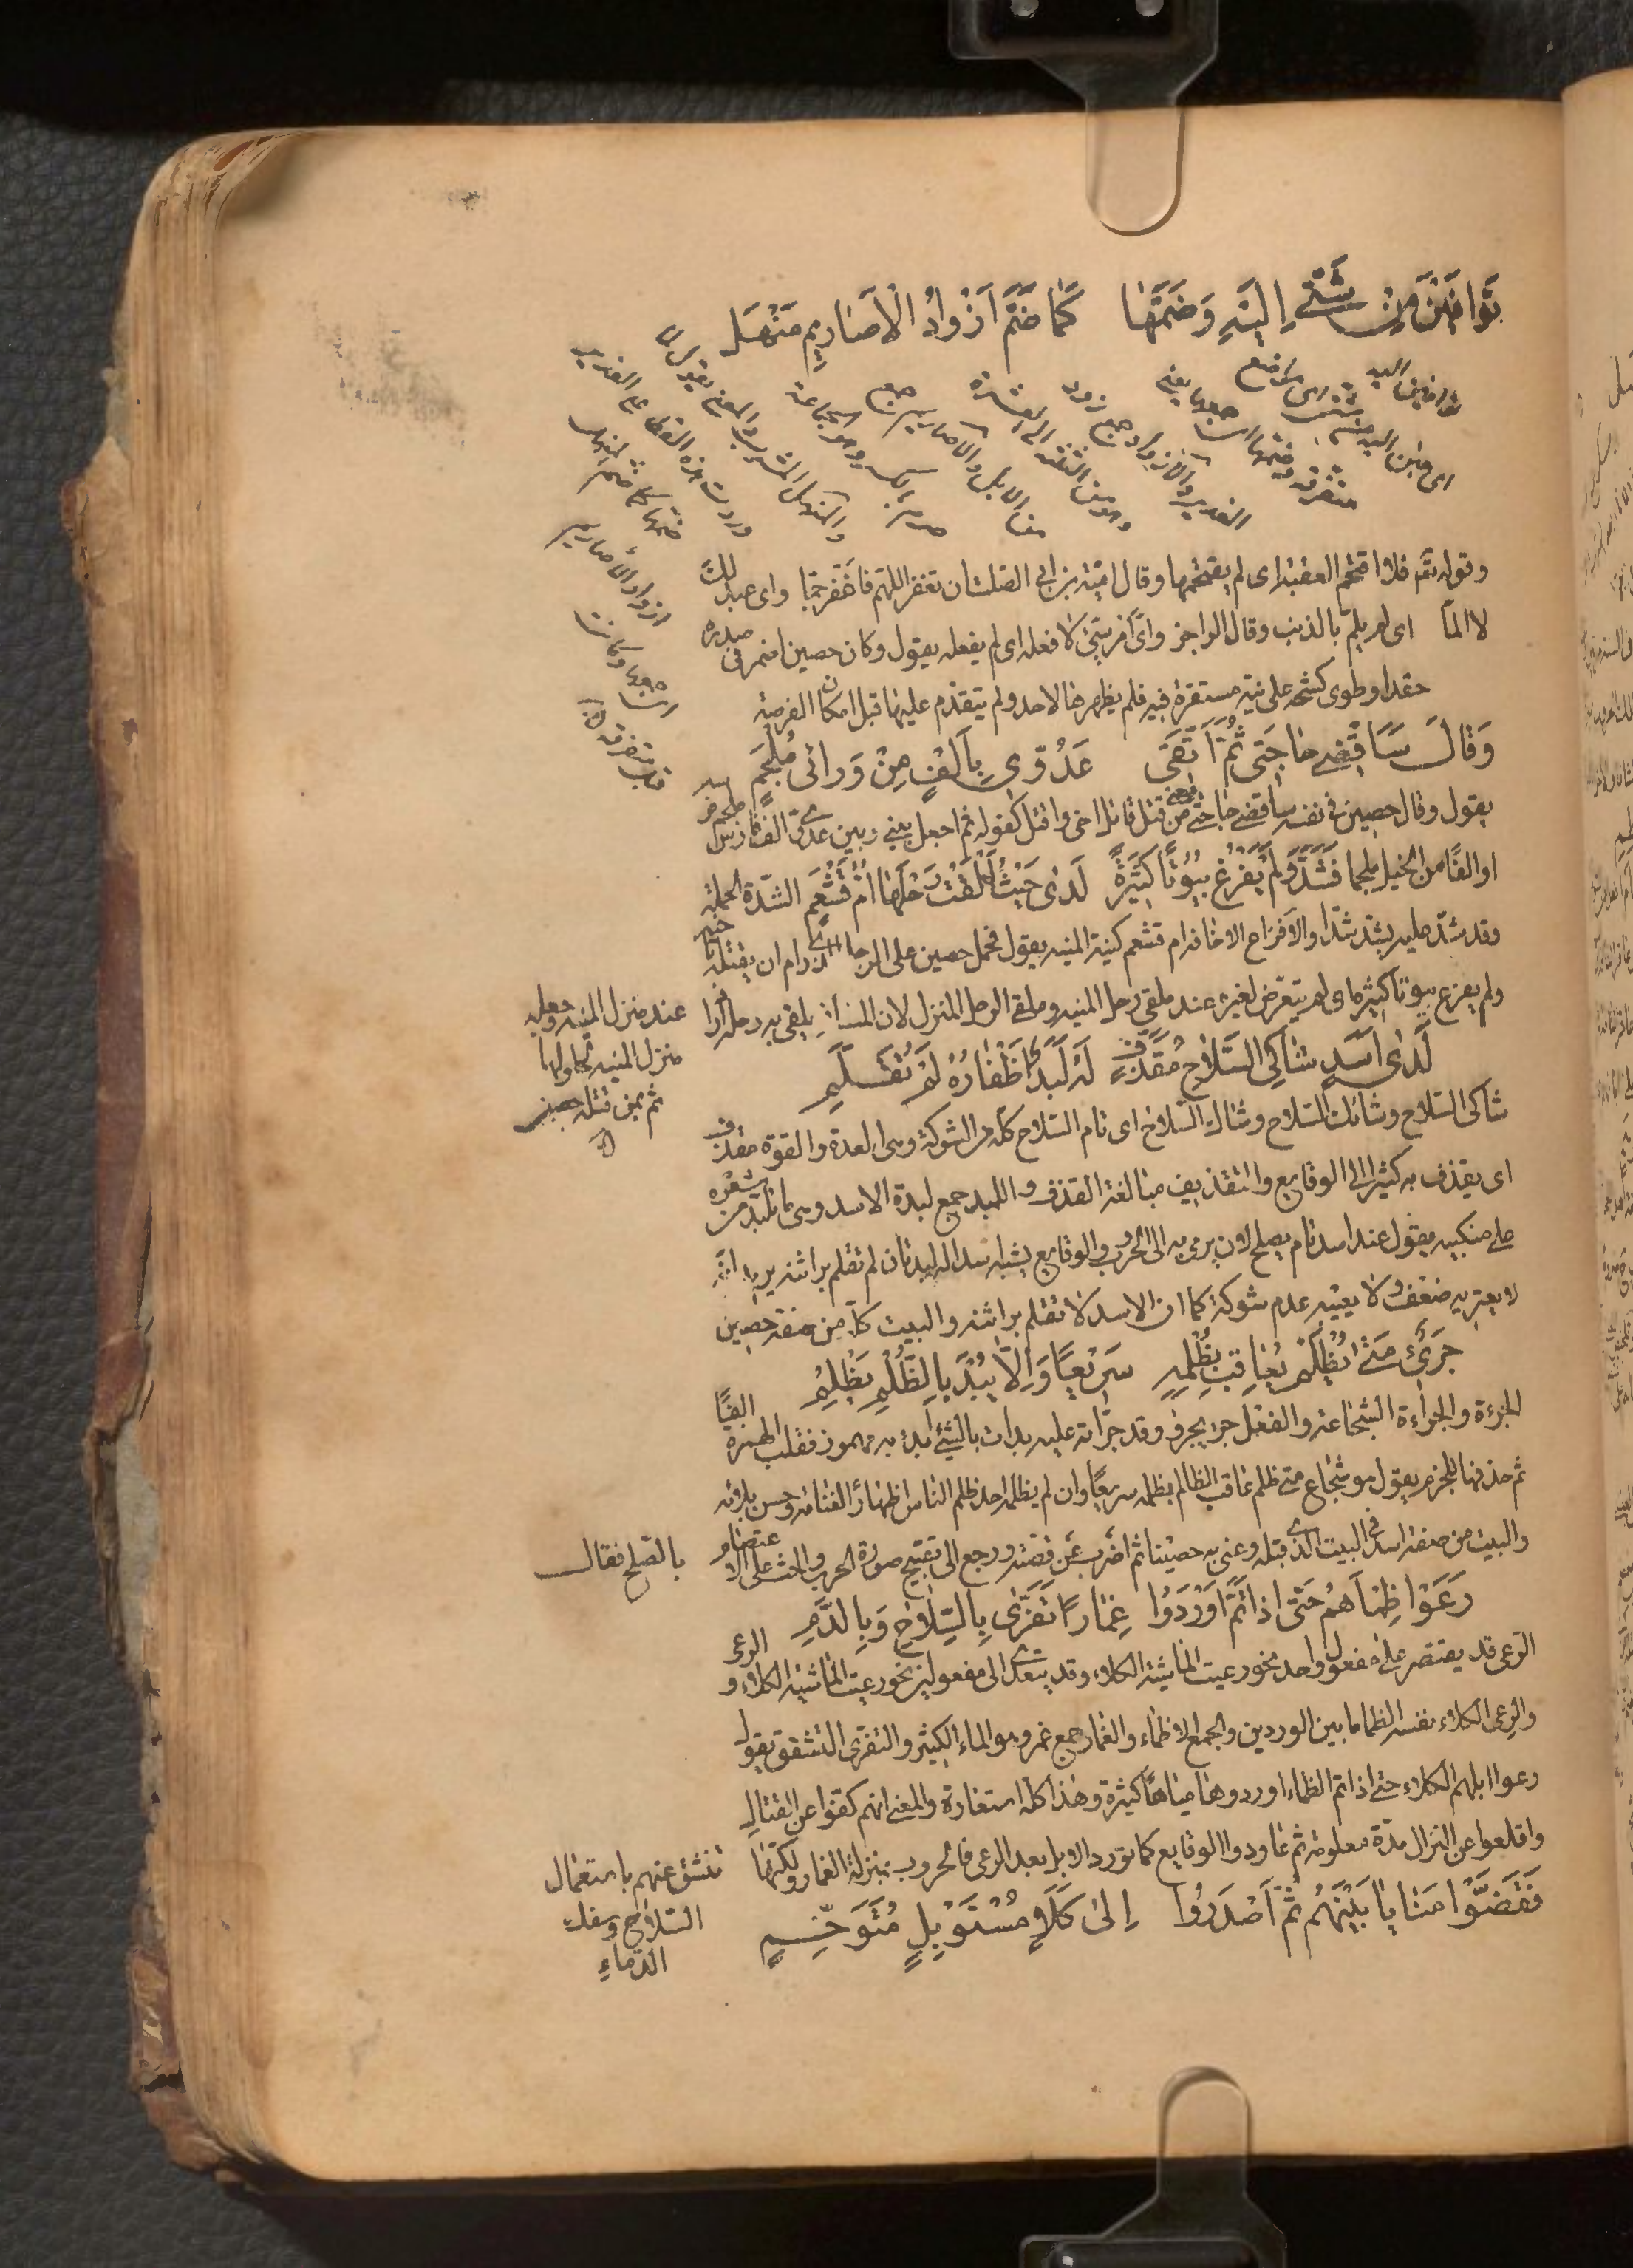 توافين من شتى اليه وضمها كما ضم ازواد الاصاريم منهل
توافين اليه
اى جئن اليه من شتى اى مواضع
متفرقة وضمها اى جمعها يعنى
الغدير والازواد جمع زود
وهو من الثلثة الى العشرة
من الابل والاصاريم جمع
صرم بالكسر وهو الجماعة
والمنهل المشرب والمعنى يقول لما
وردت هذه القطا على الغدير
ضمها كما ضم المنهل
ازواد الأصاريم
وكانت
متفرقة
وقوله تع فلا اقتحم العقبة اى لم يقتحمها وقال امية بن ابى الصلت ان تغفر اللهم فاغفر جما واى عبد لك
لا الما اى لم يلم بالذنب وقال الراجز واى امر سيئ لا فعله اى لم يفعله يقول وكان حصين اضمر فى صدره
حقدا وطوى كشحه على نية مستقرة فيه فلم يظهرها لاحد ولم يتقدم عليها قبل امكان الفرصة
وَقالَ سَاَقْضى حاجَتى ثُمَّ اَتَّقى عَدُوّى بِاَلْفٍ مِنْ وَرائى مُلْجَمِ
يقول وقال حصين فى نفسه ساقضى حاجتى من قتل قاتل اخى واقتل كفوله ثم اجعل بينى وبين عدوى الف فارس ملجم فرسه
او الفًا من الخيل ملجما فَشَدَّ وَلَمْ يَفْزَعْ بُيُوتًا كَثيرَةً لَدى حَيْثُ اَلْقَتْ رَحْلَها اُمُّ قَشْعَمِ الشدّة الحملة
وقد شدّ عليه يشدّ شدّا والافزاع الاخافة ام قشعم كنية المنية يقول فحمل حصين على الرجل الذى رام ان يقتله باخيه
ولم يفزع بيوتا كثيرة اى لم يتعرض لغيره عند ملقى رحل المنية وملقى الرحل المنزل لان المسافر يلقى به رحله اراد
عند منزل المنية وجعله
منزل المنية لحلولها
ثم بمن قتله حصين
لَدى اَسَدٍ شاكِى السِّلاحِ مُقَذَّفٍ لَهُ لِبَدٌ اَظْفارُهُ لَمْ تُقَلَّمِ
شاكى السّلاح وشائك السّلاح وشاك السّلاح اى تام السّلاح كله من الشوكة وهى العدة والقوة مقذف
اى يقذف به كثيرا الى الوقايع والتقذيف مبالغة القذف واللبد جمع لبدة الاسد وهى ما تلبد من شعره
على منكبيه يقول عند اسد تام يصلح لان يرمى به الى الحروب والوقايع يشبه اسدا له لبدتان لم تقلم براثنه يريد انه
لا يعتريه ضعف ولا يعيبه عدم شوكة كما ان الاسد لا تقلم براثنه والبيت كلّه من صفة حصين
جَرِئٍ مَتى يُظْلَمْ يُعاقِبْ بِظُلْمِهِ سَريعًا وَاِلاّ يُبْدَ بِالظُّلْمِ يَظْلِمِ
الجرءة والجراءة الشجاعة والفعل جرؤ يجرؤ وقد جرّاته عليه بدات بالشئ ابدء به مهموز فقلب الهمزة الفًا
ثم حذفها للجزم يقول هو شجاع متى ظلم عاقب الظالم بظلمه سريعًا وان لم يظلمه احد ظلم الناس اظهارا لغنائه وحسن بلائه
والبيت من صفة اسد فى البيت الذى قبله وعنى به حصينا ثم اضرب عن قصته ورجع الى تقبيح صورة الحرب والحث على الاعتصام
بالصلح فقال
رَعَوْا ظِمْاَهُمْ حَتّى اِذا تَمَّ اَوْرَدُوا غِمارًا تَفَرّى بِالسِّلاحِ وَبِالدَّمِ
الرّعى قد يقتصر على مفعول واحد نحو رعيت الماشية الكلاء وقد يتعدى الى مفعولين نحو رعيت الماشية الكلاء و الرعى
والرعى الكلاء نفسه الظما ما بين الوردين والجمع الاظماء والغمار جمع غمر وهو الماء الكثير والتفرّى التشقق يقول
رعوا ابلهم الكلاء حتى اذا تم الظماء اوردوها مياهًا كثيرة وهذا كله استعارة والمعنى انهم كفوا عن القتال
واقلعوا عن النزال مدّة معلومة ثم عاودوا الوقايع كما تورد الابل بعد الرعى فالحروب بمنزلة الغمار ولكنّها
تنشق عنهم باستعمال
السّلاح وسفك
الدّماءِ
فَقَضَّوْا مَنايا بَيْنَهُمْ ثُمَّ اَصْدَرُوا اِلى كَلَاءٍ مُسْتَوْبِلٍ مُتَوَخِّمِ